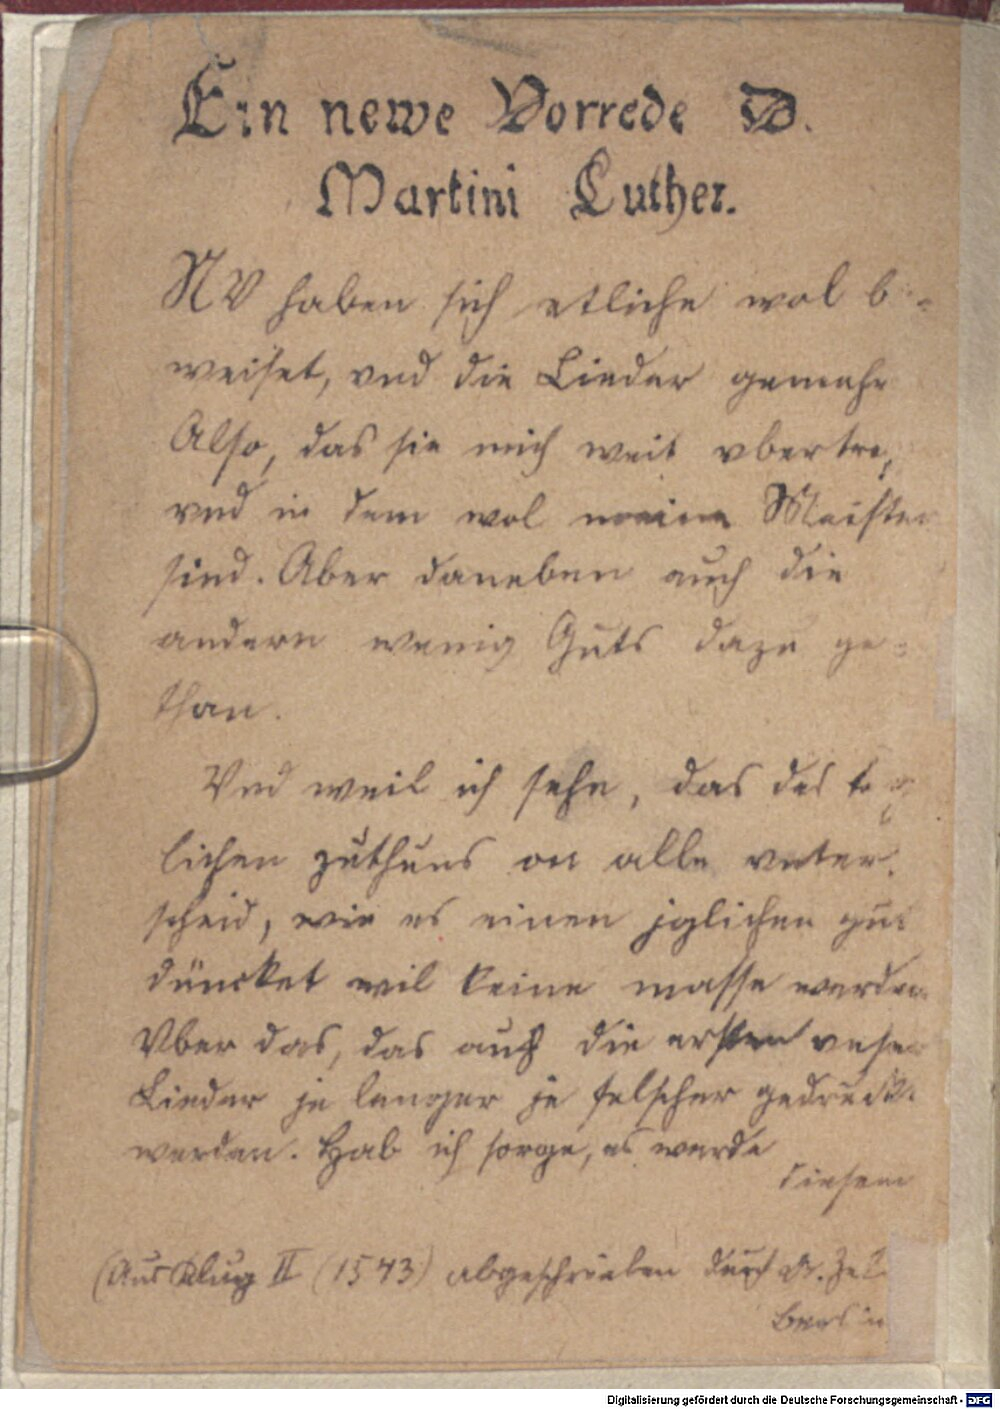 Ein newe Vorrede D.
Martini Luther.
NV haben sich etliche wol b
weiset, vnd die Lieder gemehr
Also, das sie mich weit vbertre
vnd in dem wol meine Meister
sind. Aber daneben auch die
andern wenig Guts dazu ge-
than.
Vnd weil ich sehe, das des teg
lichen zuthuns on alle vnter
scheid, wie es einen jglichen gut
düncket wil keine masse werden
Vber das, das auch die ersten vnser
Lieder je lenger je felscher gedruckt
werden. Hab ich sorge, es werde
diesem
(Aus Klug II (1543) abgeschrieben durch
Berlin
Digitalisierung gefördert durch die Deutsche Forschungsgemeinschaft - DFG